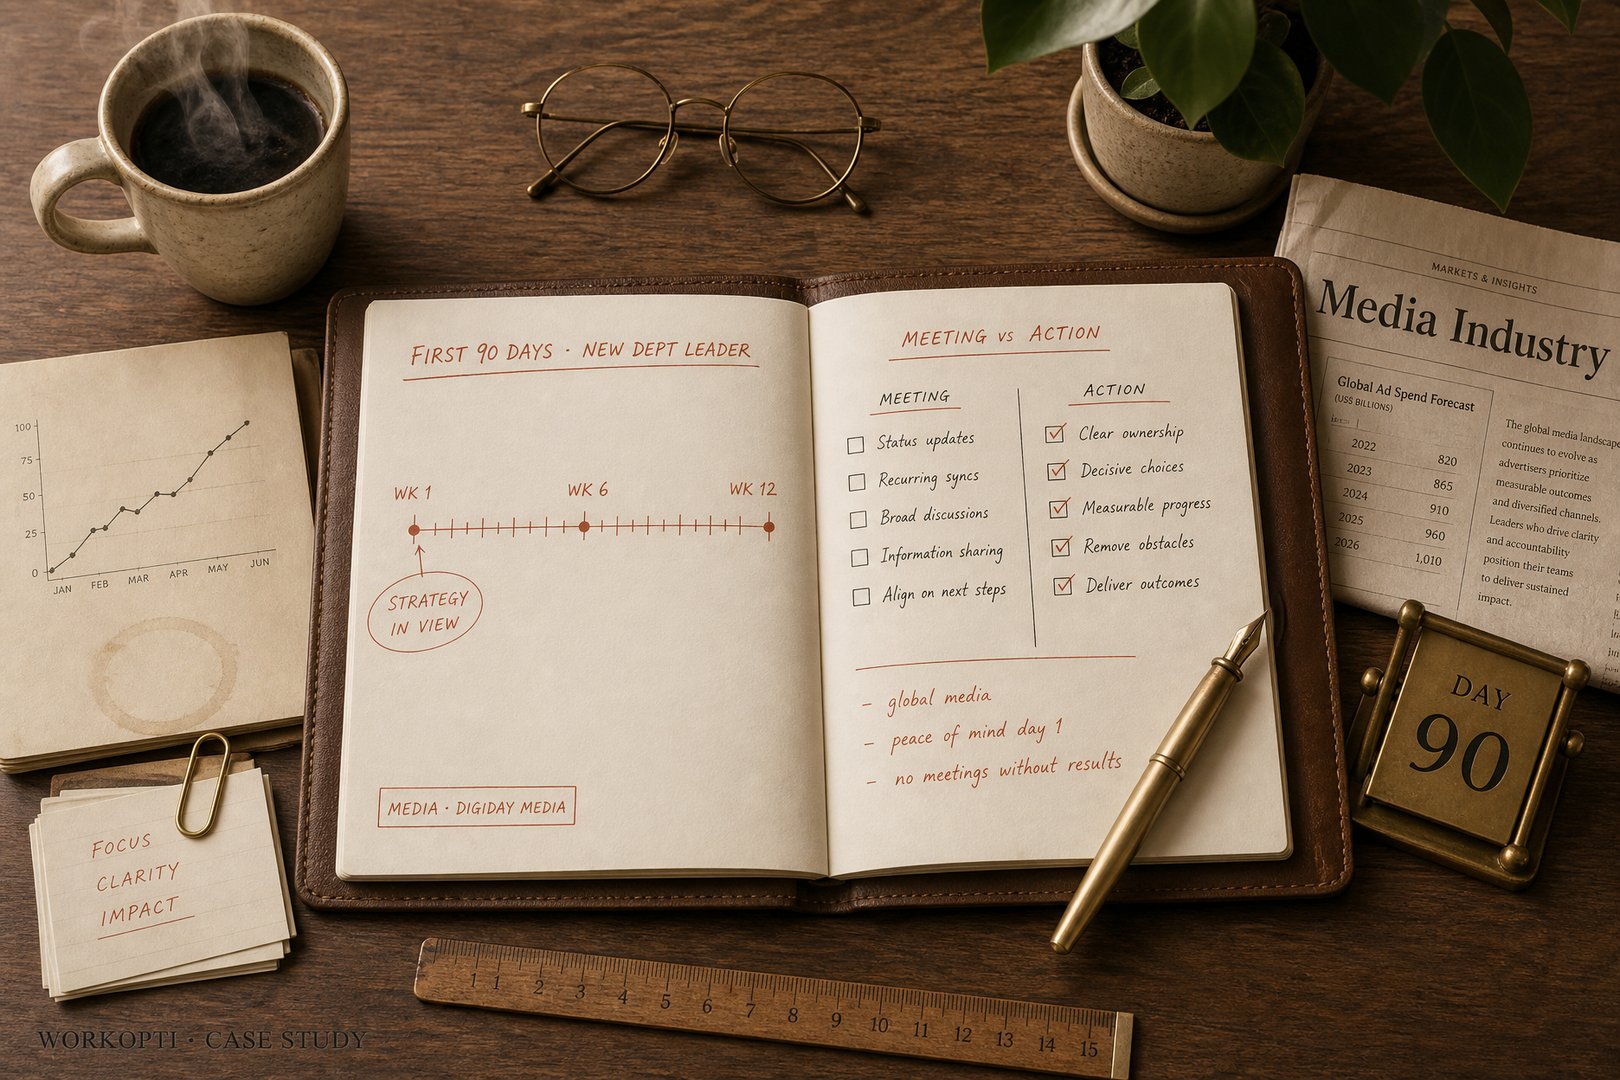 FIRST 90 DAYS · NEW DEPT LEADER
WK 1
WK 6
WK 12
STRATEGY
IN VIEW
MEDIA · DIGIDAY MEDIA
MEETING vs ACTION
MEETING
Status updates
Recurring syncs
Broad discussions
Information sharing
Align on next steps
ACTION
Clear ownership
Decisive choices
Measurable progress
Remove obstacles
Deliver outcomes
– global media
– peace of mind day 1
– no meetings without results
100
75
50
25
0
JAN FEB MAR APR MAY JUN
FOCUS
CLARITY
IMPACT
MARKETS & INSIGHTS
Media Industry
Global Ad Spend Forecast
(US$ BILLIONS)
2022 820
2023 865
2024 910
2025 960
2026 1,010
The global media landscape
continues to evolve as
advertisers prioritize
measurable outcomes
and diversified channels.
Leaders who drive clarity
and accountability
position their teams
to deliver sustained
impact.
DAY
90
1 1 2 3 4 5 6 7 8 9 10 11 12 13 14 15
WORKOPTI · CASE STUDY